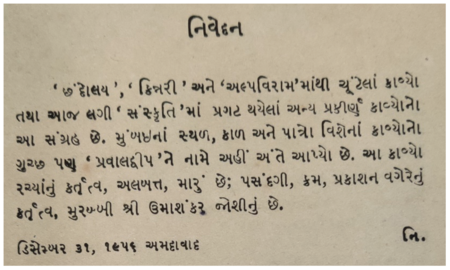 નિવેદન
'છંદોલય', 'કિન્નરી' અને 'અલ્પવિરામ'માંથી ચૂંટેલાં કાવ્યો
તથા આજ લગી 'સંસ્કૃતિ'માં પ્રગટ થયેલાં અન્ય પ્રકીર્ણ કાવ્યોનો
આ સંગ્રહ છે. મુંબઈનાં સ્થળ, કાળ અને પાત્રો વિશેનાં કાવ્યોનો
ગુચ્છ પણ 'પ્રવાલદ્વીપ'ને નામે અહીં અંતે આપ્યો છે. આ કાવ્યો
રચ્યાંનું કર્તૃત્વ, અલબત્ત, મારું છે; પસંદગી, ક્રમ, પ્રકાશન વગેરેનું
કર્તૃત્વ, મુરબ્બી શ્રી ઉમાશંકર જોશીનું છે.
ડિસેમ્બર ૩૧, ૧૯૫૬ અમદાવાદ નિ.